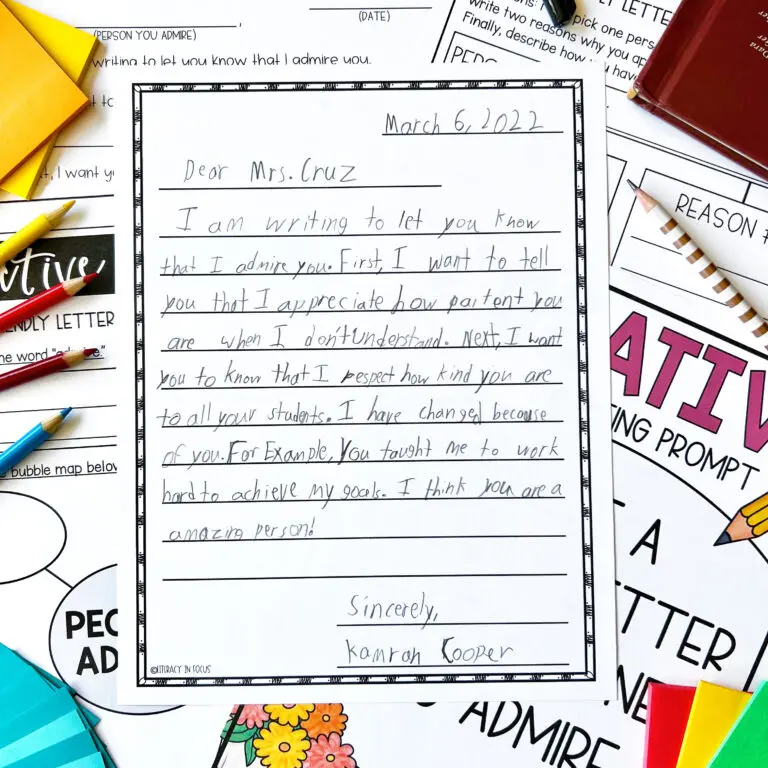 (DATE)
(PERSON YOU ADMIRE)
writing to let you know that I admire you.
LETTER
pick one person
write two reasons why you
Finally, describe how you have
March 6, 2022
Dear Mrs. Cruz
I am writing to let you know
that I admire you. First, I want to tell
you that I appreciate how paitent you
are when I don't Understand. Next, I want
you to know that I respect how kind you are
to all your students. I have changed because
of you. For Example, You taught me to work
hard to achieve my goals. I think you are a
amazing person!
Sincerely,
Kamran Cooper
©LITERACY IN FOCUS
, I want
LETTER
the word "admire."
bubble map below
REASON #
WRITING PROMPT
A
LETTER
ADMIRE